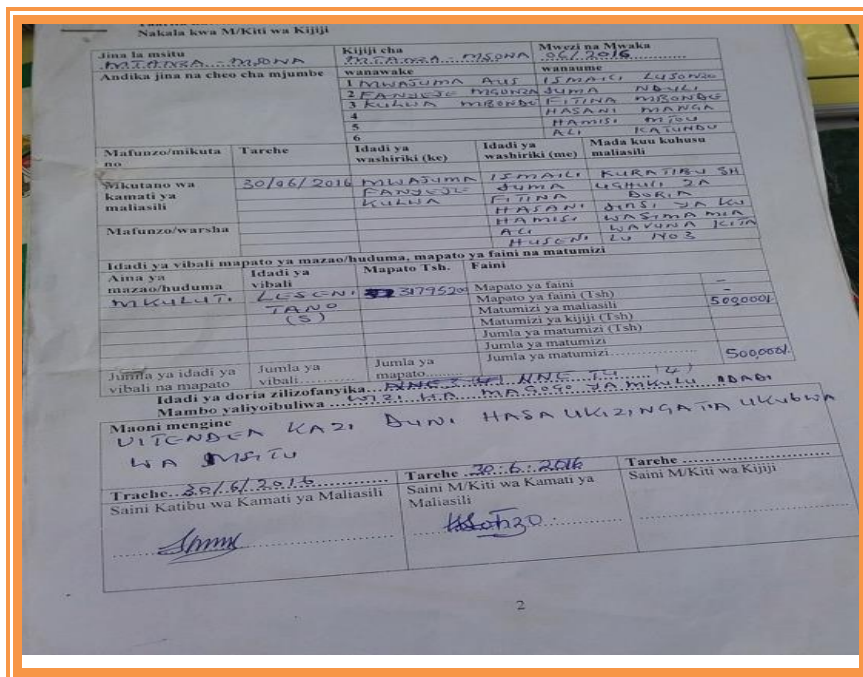 Nakala kwa M/Kiti wa Kijiji
Jina la msitu Kijiji cha Mwezi na Mwaka
MTANZA MSONA MTANZA MSONA 06/2016
Andika jina na cheo cha mjumbe wanawake wanaume
1 MWAJUMA AUS ISMAILI LUSONZO
2 FANYEJE MGUNZA JUMA NDULI
3 KULWA MBONDE FITINA MBONDE
4 HASANI MANGA
5 HAMISI MTOU
6 ALI KATUNDU
Mafunzo/mikuta no Tareche Idadi ya washiriki (ke) Idadi ya washiriki (me) Mada kuu kuhusu maliasili
Mikutano wa kamati ya maliasili 30/06/2016 MWAJUMA ISMAILI KURATIBU SH
FANYEJE JUMA UGHULI ZA
KULWA FITINA DORIA
HASANI JINSI YA KU
Mafunzo/warsha HAMISI WASIMAMIA
ALI WAVUNA KITA
HUSENI LU NO3
Idadi ya vibali mapato ya mazao/huduma, mapato ya faini na matumizi
Aina ya mazao/huduma Idadi ya vibali Mapato Tsh. Faini
MKULUTI LESENI 3179520 Mapato ya faini –
TANO Mapato ya faini (Tsh) –
(5) Matumizi ya maliasili 500,000/-
Matumizi ya kijiji (Tsh)
Jumla ya matumizi (Tsh)
Jumla ya matumizi
Jumla ya idadi ya vibali na mapato Jumla ya vibali Jumla ya mapato Jumla ya matumizi 500,000/-
Idadi ya doria zilizofanyika NNE (4)
Mambo yaliyoibuliwa WIZI WA MAGOGO YA MKULU IDADI
Maoni mengine
VITENDEA KAZI DUNI HASA UKIZINGATIA UKUBWA
WA MSITU
Trache 30/6/2016 Tarche 30:6:2016 Tarche
Saini Katibu wa Kamati ya Maliasili Saini M/Kiti wa Kamati ya Maliasili Saini M/Kiti wa Kijiji
2